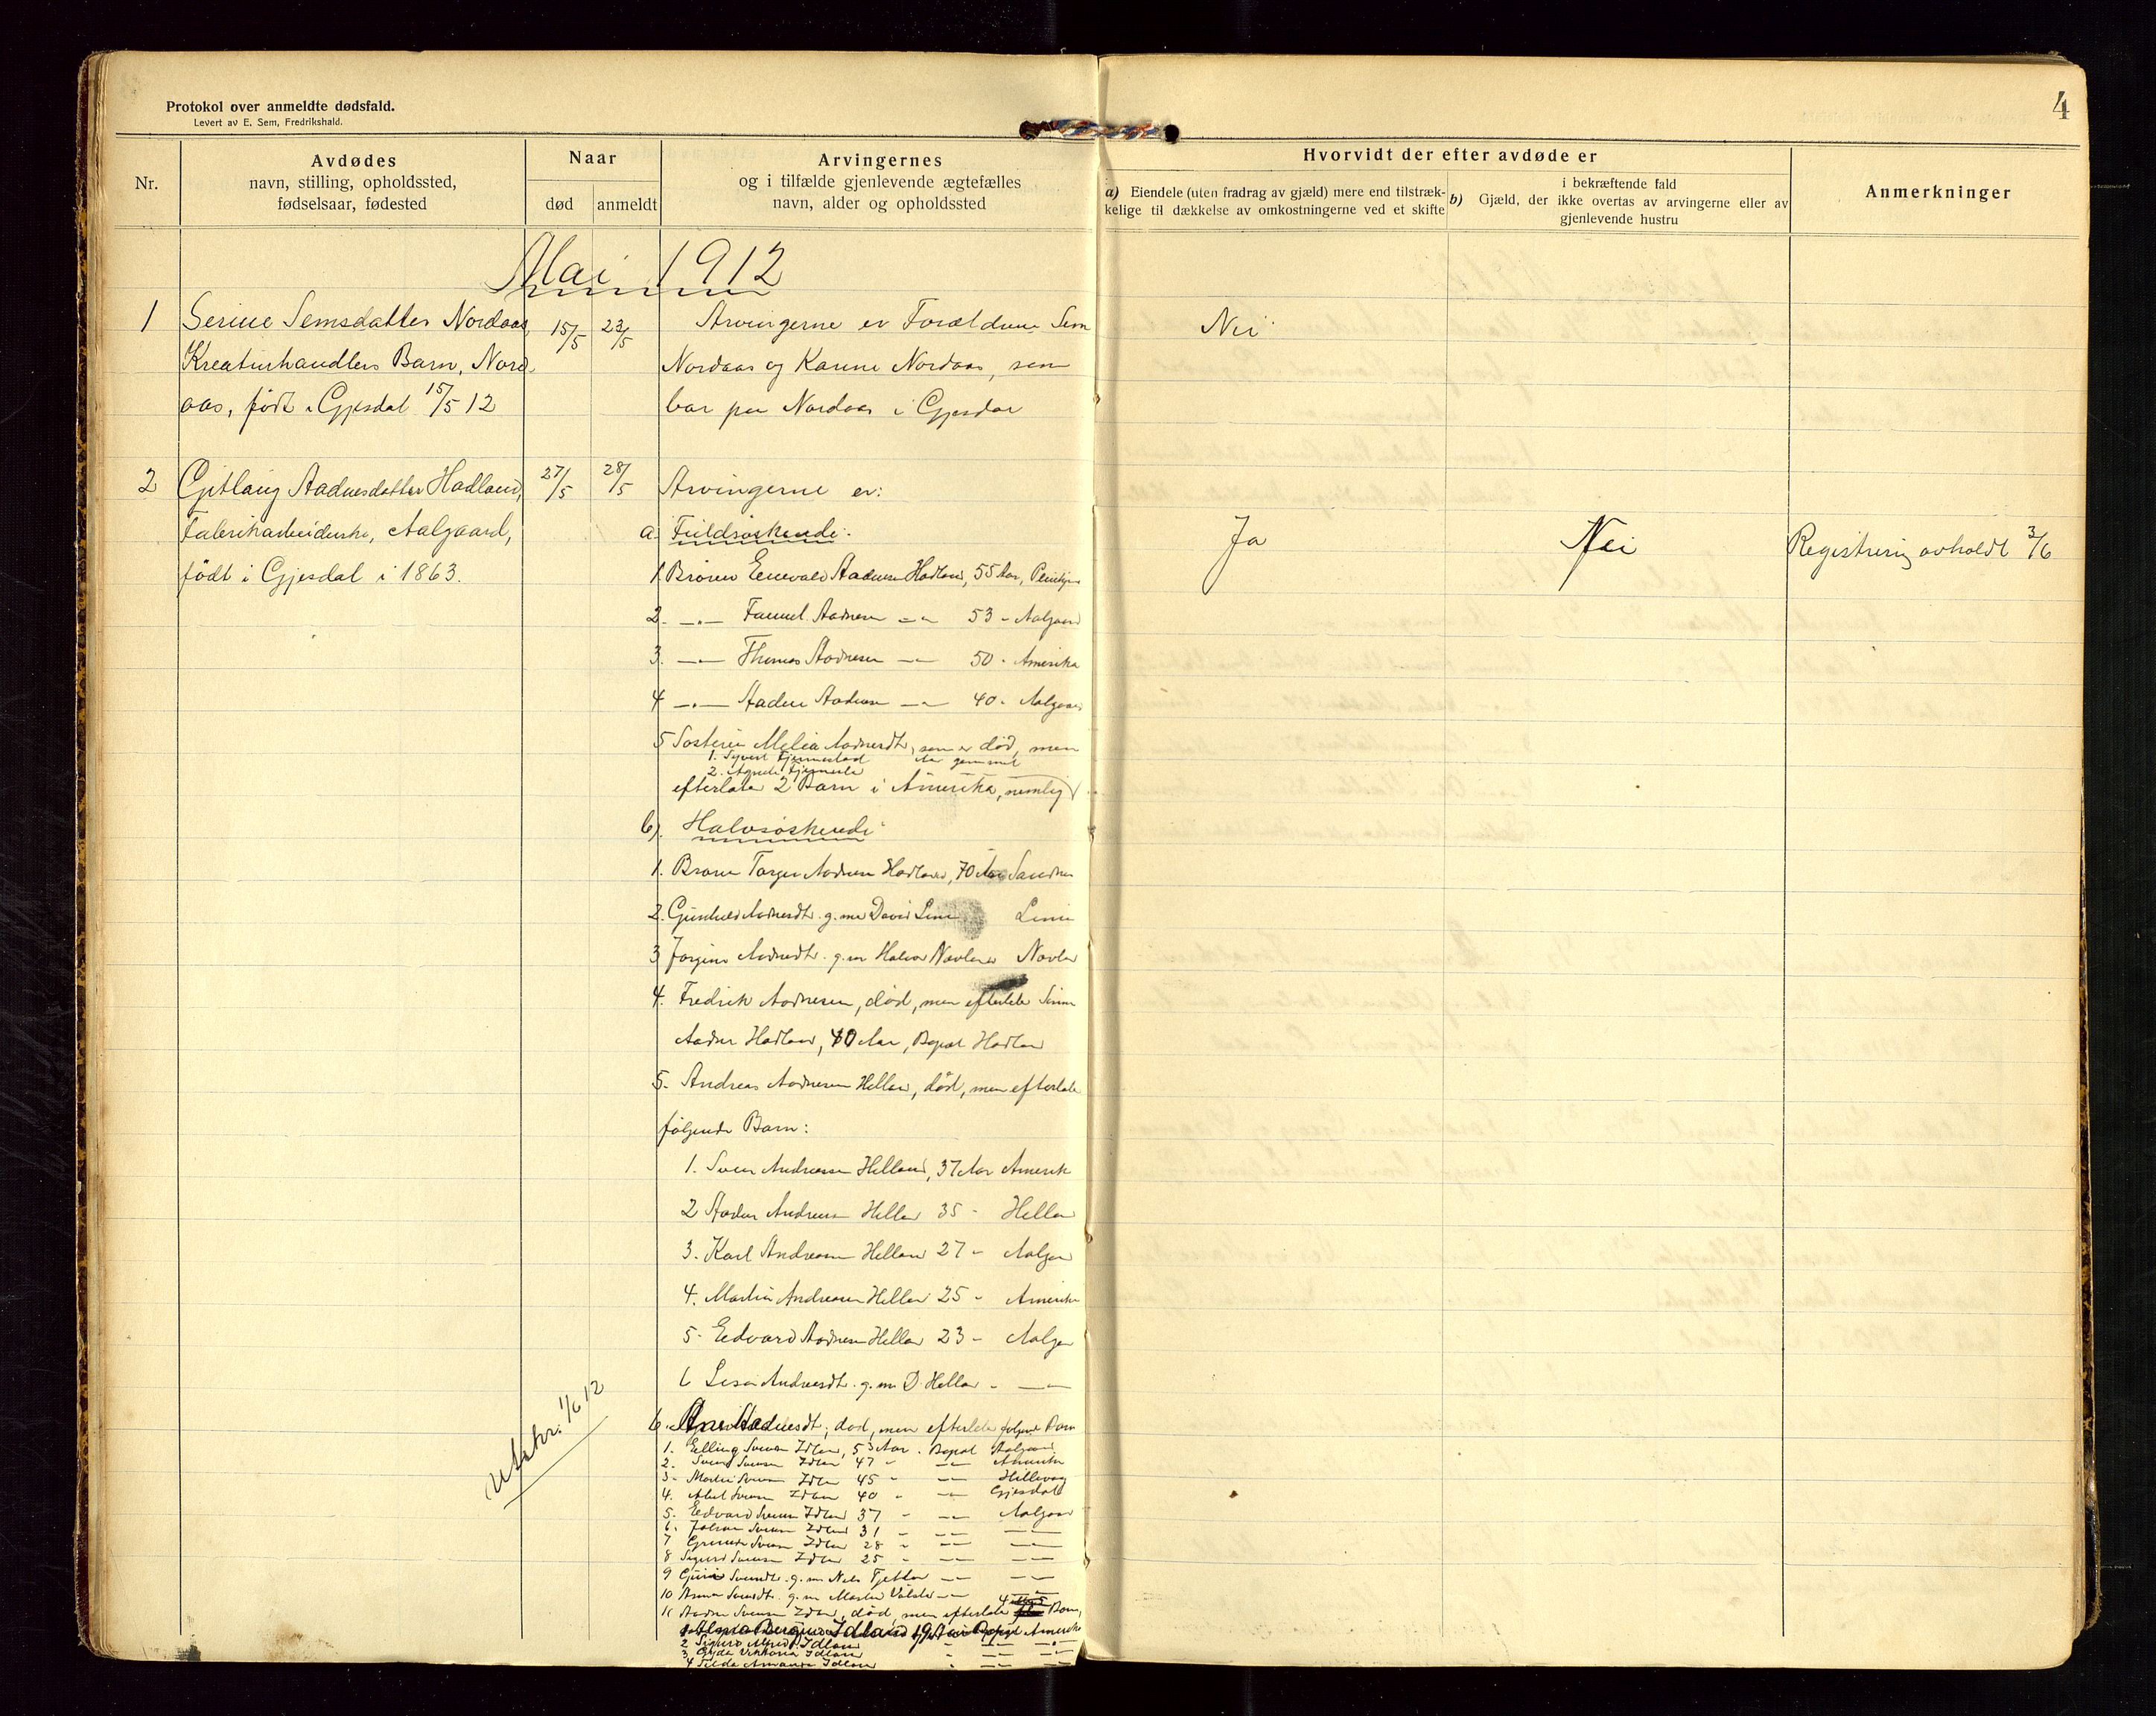 Protokol over anmeldte dødsfald.
Levert av E. Sem, Fredrikshald.
4
Nr.
Avdødes
navn, stilling, opholdssted,
fødselsaar, fødested
Naar
død
anmeldt
Arvingernes
og i tilfælde gjenlevende ægtefælles
navn, alder og opholdssted
Hvorvidt der efter avdøde er
a) Eiendele (uten fradrag av gjæld) mere end tilstræk-
kelige til dækkelse av omkostningerne ved et skifte
i bekræftende fald
b) Gjæld, der ikke overtas av arvingerne eller av
gjenlevende hustru
Anmerkninger
Mai 1912
1 Serine Semsdatter Nordaas
Kreaturhandlers Barn, Nord-
aas, født i Gjesdal 15/5 12
15/5 23/5
Arvingerne er Forældrene Sem
Nordaas og Karine Nordaas, som
bor paa Nordaas i Gjesdal
Nei
2 Gitlaug Aadnesdatter Hadland,
Fabrikarbeiderske, Aalgaard,
født i Gjesdal i 1863.
27/5 28/5
Arvingerne er:
a. Fuldsøskende:
1. Broren Enevald Aadnesen Hadland, 55 Aar,
2. -"- Samuel Aadnesen -"- 53 - Aalgaard
3. -"- Thomas Aadnesen -"- 50 - Amerika
4 -"- Aadne Aadnesen -"- 40 - Aalgaard
5 Søsteren Aadnesdtr, som er død, men
1. Sivert
2. Agnete
efterlater 2 Barn i Amerika, nemlig
b). Halvsøskende
1. Broren Torger Aadnesen Hadland, 70 Aar Sandnes
2. Gunhild Aadnesdtr. g. m. David
3 Jorgine Aadnesdtr. g. m.
4. Fredrik Aadnesen, død, men efterlater Sønnen
Aadne Hadland, 40 Aar, Bopæl Hadland
5. Andreas Aadnesen Helland, død, men efterlater
følgende Barn:
1. Sven Andreasen Helland, 37 Aar Amerika
2 Aadne Andreasen Helland 35 - Helland
3. Karl Andreasen Helland 27 - Aalgaard
4. Martin Andreasen Helland 25 - Amerika
5. Edvard Aadnesen Helland 23 - Aalgaard
6 Andreasdtr. g. m. D. Helland - -"-
6. Aadnesdtr, død, men efterlater følgende Barn
1. Elling Svensen Idland, 53 Aar. Bopæl Aalgaard
2. Svend Svensen Idland 47 - -"- Amerika
3. Martin Svensen Idland 45 - -"- Hillevaag
4. Abel Svensen Idland 40 - -"- Gjesdal
5. Edvard Svensen Idland 37 - -"- Aalgaard
6. Johan Svensen Idland 31 - -"- -"-
7 Svensen Idland 28 - -"- -"-
8 Sigurd Svensen Idland 25 - -"- -"-
9 Svensdtr. g. m. Nils -"- -"-
10 Anna Svensdtr. g. m. Martin -"- -"-
11 Aadne Svensen Idland, død, men efterlater 4 Barn,
Idland 19 Aar Bopæl Amerika
2 Sigurd Alfred Idland - -"- -"-
3 Gyda Viktoria Idland - -"- -"-
4 Tilda Amanda Idland - -"- -"-
Ja
Nei
Registrering avholdt 3/6
Utskr. 1/6 12